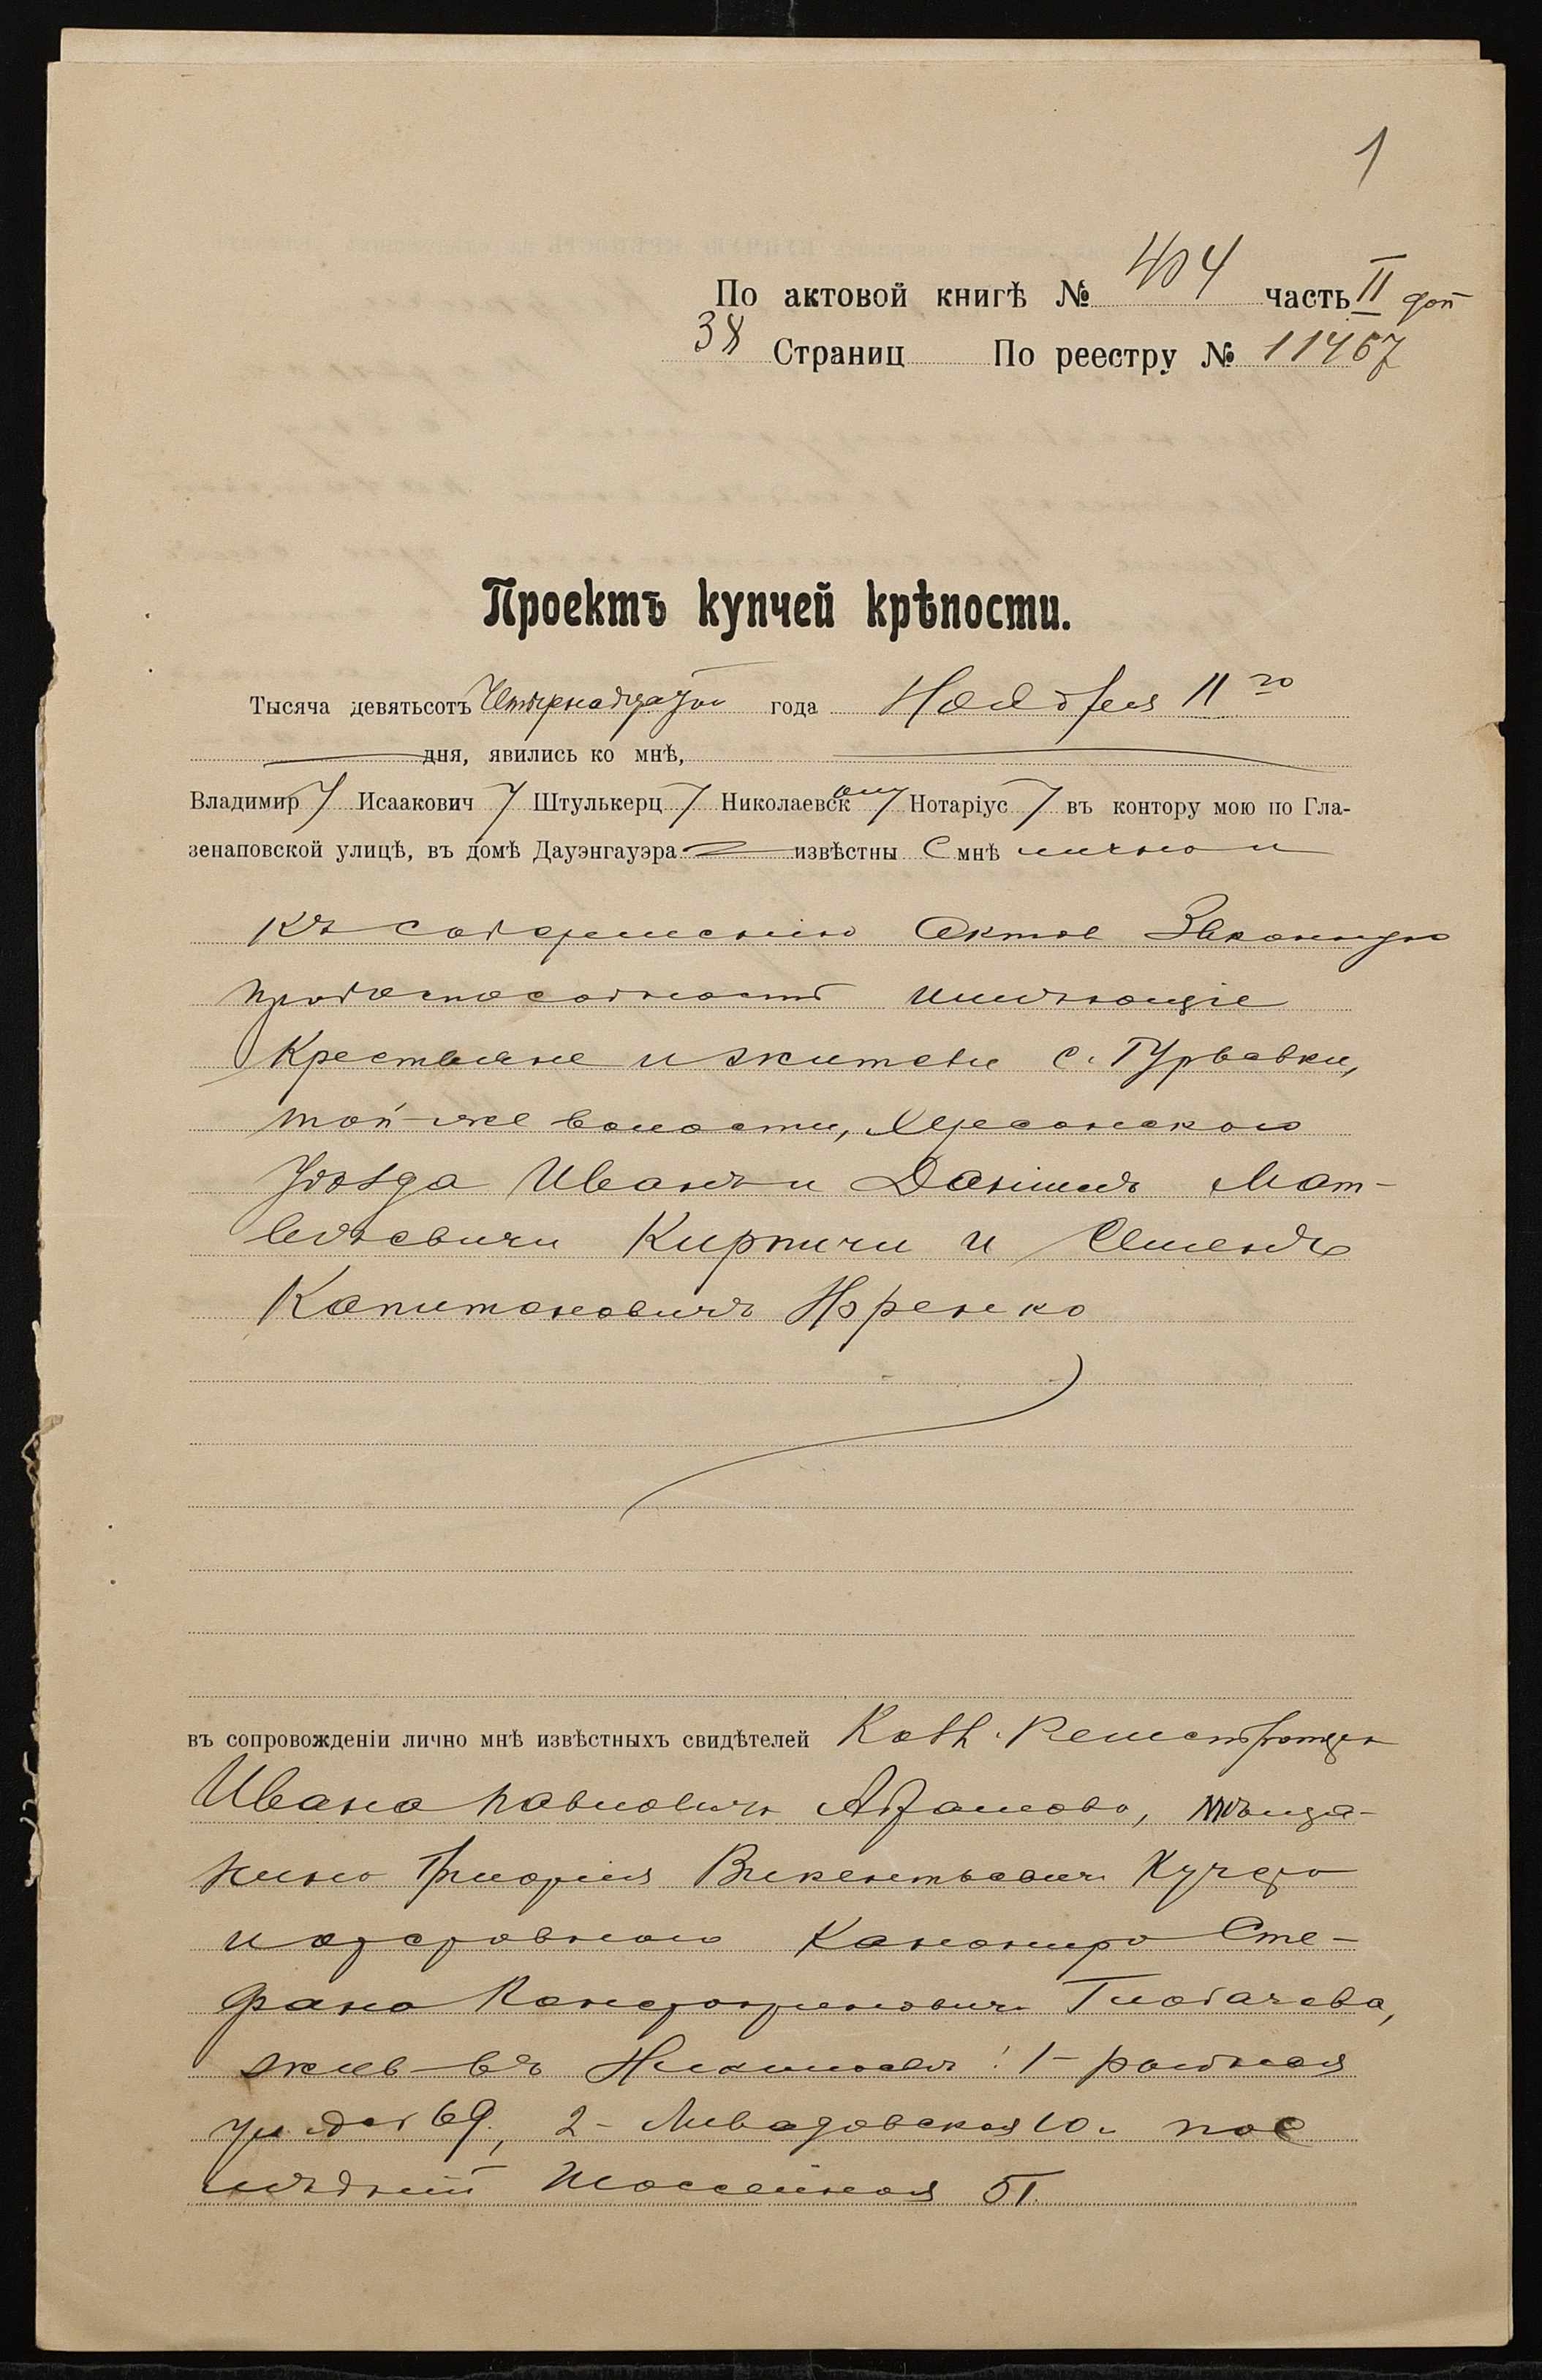 1
По актовой книгѣ № 404 часть II доп
38 Страниц По реестру № 11467
Проектъ купчей крѣпости.
Тысяча девятьсотъ Четырнадцатого года Ноября 11 го
дня, явились ко мнѣ,
Владимир Исаакович Штулькерц Николаевск ому Нотаріус въ контору мою по Гла-
зенаповской улицѣ, въ домѣ Дауэнгауэра извѣстны е мнѣ лично и
къ совершенію актов законную
правоспособность имѣющіе
Крестьяне и жители с. Гурьевки,
той-же волости, Херсонского
уѣзда Иванъ и Даніилъ Мат-
вѣевичи Кирпичи и Семенъ
Капитоновичъ
въ сопровожденіи лично мнѣ извѣстныхъ свидѣтелей Колл. Регистратора
Ивана Павловича мѣща-
нина Григорія Викентьевич
и Канонира Сте-
фана
жив-въ Николаевѣ: 1-
ул. 69, 2- 10 и пос
лѣдній Шоссейная 51.